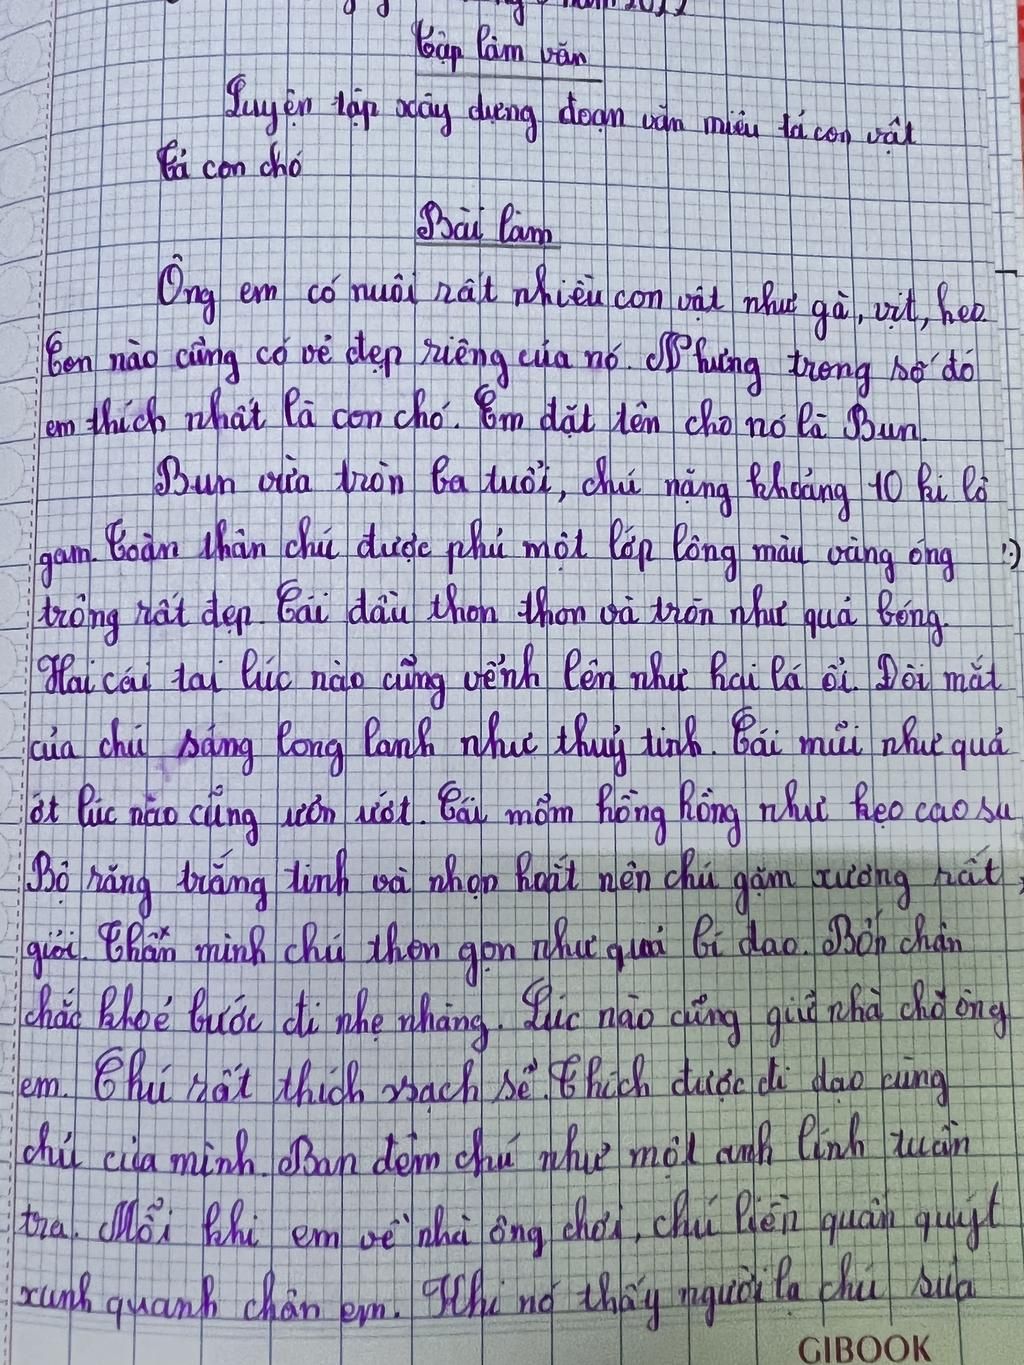 năm 2022
Tập làm văn
Luyện tập xây dựng đoạn văn miêu tả con vật
Tả con chó
Bài làm
Ông em có nuôi rất nhiều con vật như gà, vịt, heo.
Con nào cũng có vẻ đẹp riêng của nó. Nhưng trong số đó
em thích nhất là con chó. Em đặt tên cho nó là Bun.
Bun vừa tròn ba tuổi, chú nặng khoảng 10 ki lô
gam. Toàn thân chú được phủ một lớp lông màu vàng óng
trông rất đẹp. Cái đầu thon thon và tròn như quả bóng.
Hai cái tai lúc nào cũng vểnh lên như hai lá ổi. Đôi mắt
của chú sáng long lanh như thuỷ tinh. Cái mũi như quả
ớt lúc nào cũng ươn ướt. Cái mồm hồng hồng như kẹo cao su
Bộ răng trắng tinh và nhọn hoắt nên chú gặm xương rất
giỏi. Thân mình chú thon gọn như quả bí đao. Bốn chân
chắc khoẻ bước đi nhẹ nhàng. Lúc nào cũng giữ nhà cho ông
em. Chú rất thích sạch sẽ. Thích được đi dạo cùng
chủ của mình. Ban đêm chú như một anh lính tuần
tra. Mỗi khi em về nhà ông chơi, chú liền quấn quýt
xung quanh chân em. Khi nó thấy người lạ chú sủa
GIBOOK